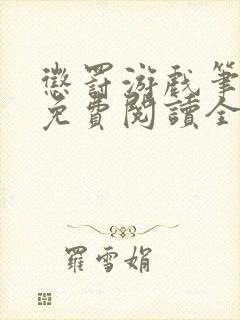 懲罰游戲筆
免費閱讀全
羅雪娟